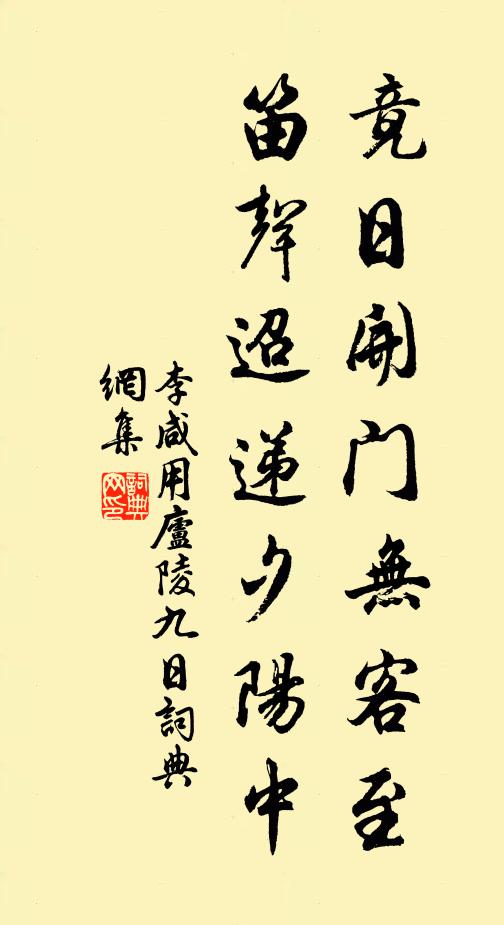 竟日開門無客至
笛聲迢遞夕陽中
李咸用廬陵九日詞典
網集
詞典
网印